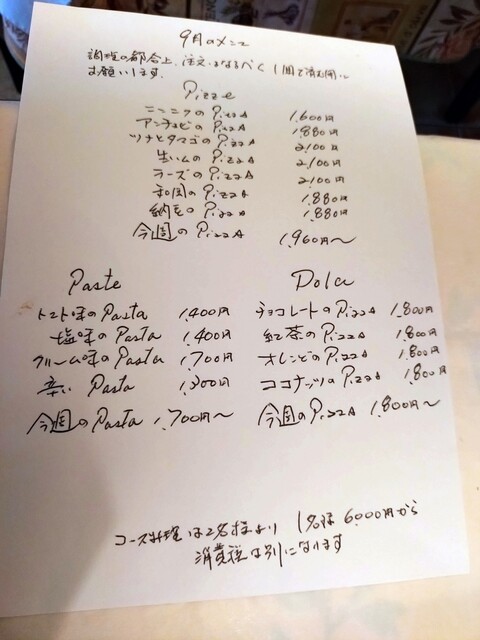 9月のメニュー
調理の都合上、注文はなるべく1回で
お願いします。
Pizze
ニンニクのPizza 1,600円
アンチョビのPizza 1,880円
ツナとタマゴのPizza 2,100円
生ハムのPizza 2,100円
チーズのPizza 2,100円
和風のPizza 1,880円
納豆のPizza 1,880円
今週のPizza 1,960円〜
Paste
トマト味のPasta 1,400円
塩味のPasta 1,400円
クリーム味のPasta 1,700円
辛いPasta 1,300円
今週のPasta 1,700円〜
Dolci
チョコレートのPizza 1,800円
紅茶のPizza 1,800円
オレンジのPizza 1,800円
ココナッツのPizza 1,800円
今週のPizza 1,800円〜
コース料理は2名様より 1名様 6,000円から
消費税は別になります